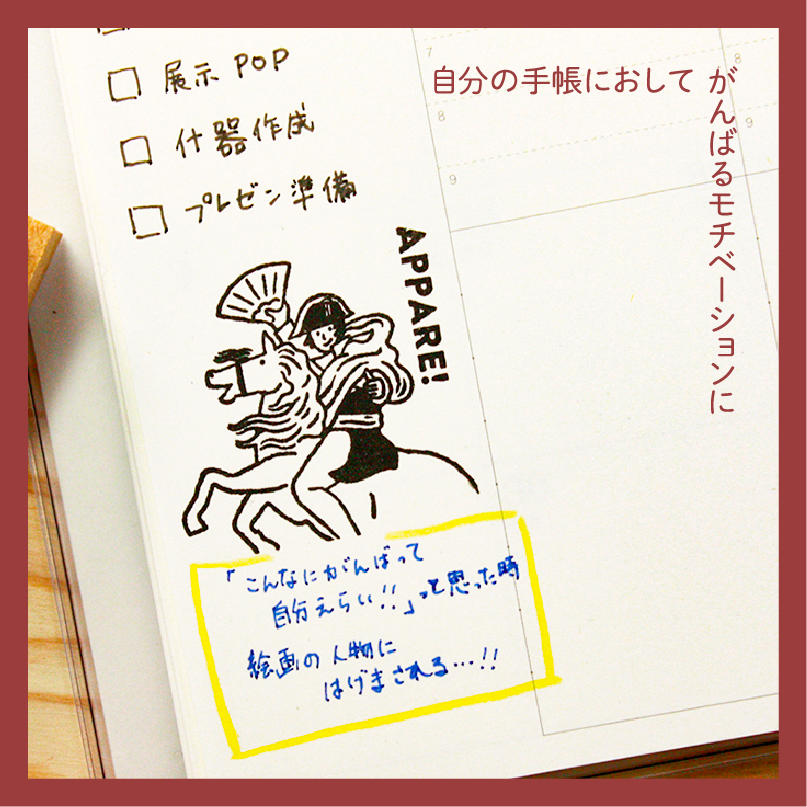 自分の手帳におして
がんばるモチベーションに
展示 POP
什器作成
プレゼン準備
APPARE!
「こんなにがんばって
自分えらい!!」って思った時
絵画の人物に
はげまされる…!!
7
8
9
8
9